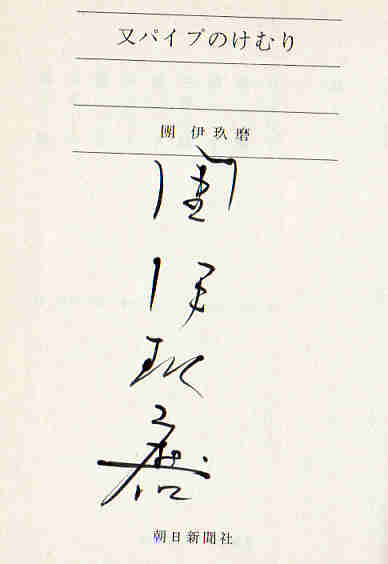 又パイプのけむり
團 伊玖磨
團
伊
玖
磨
朝日新聞社